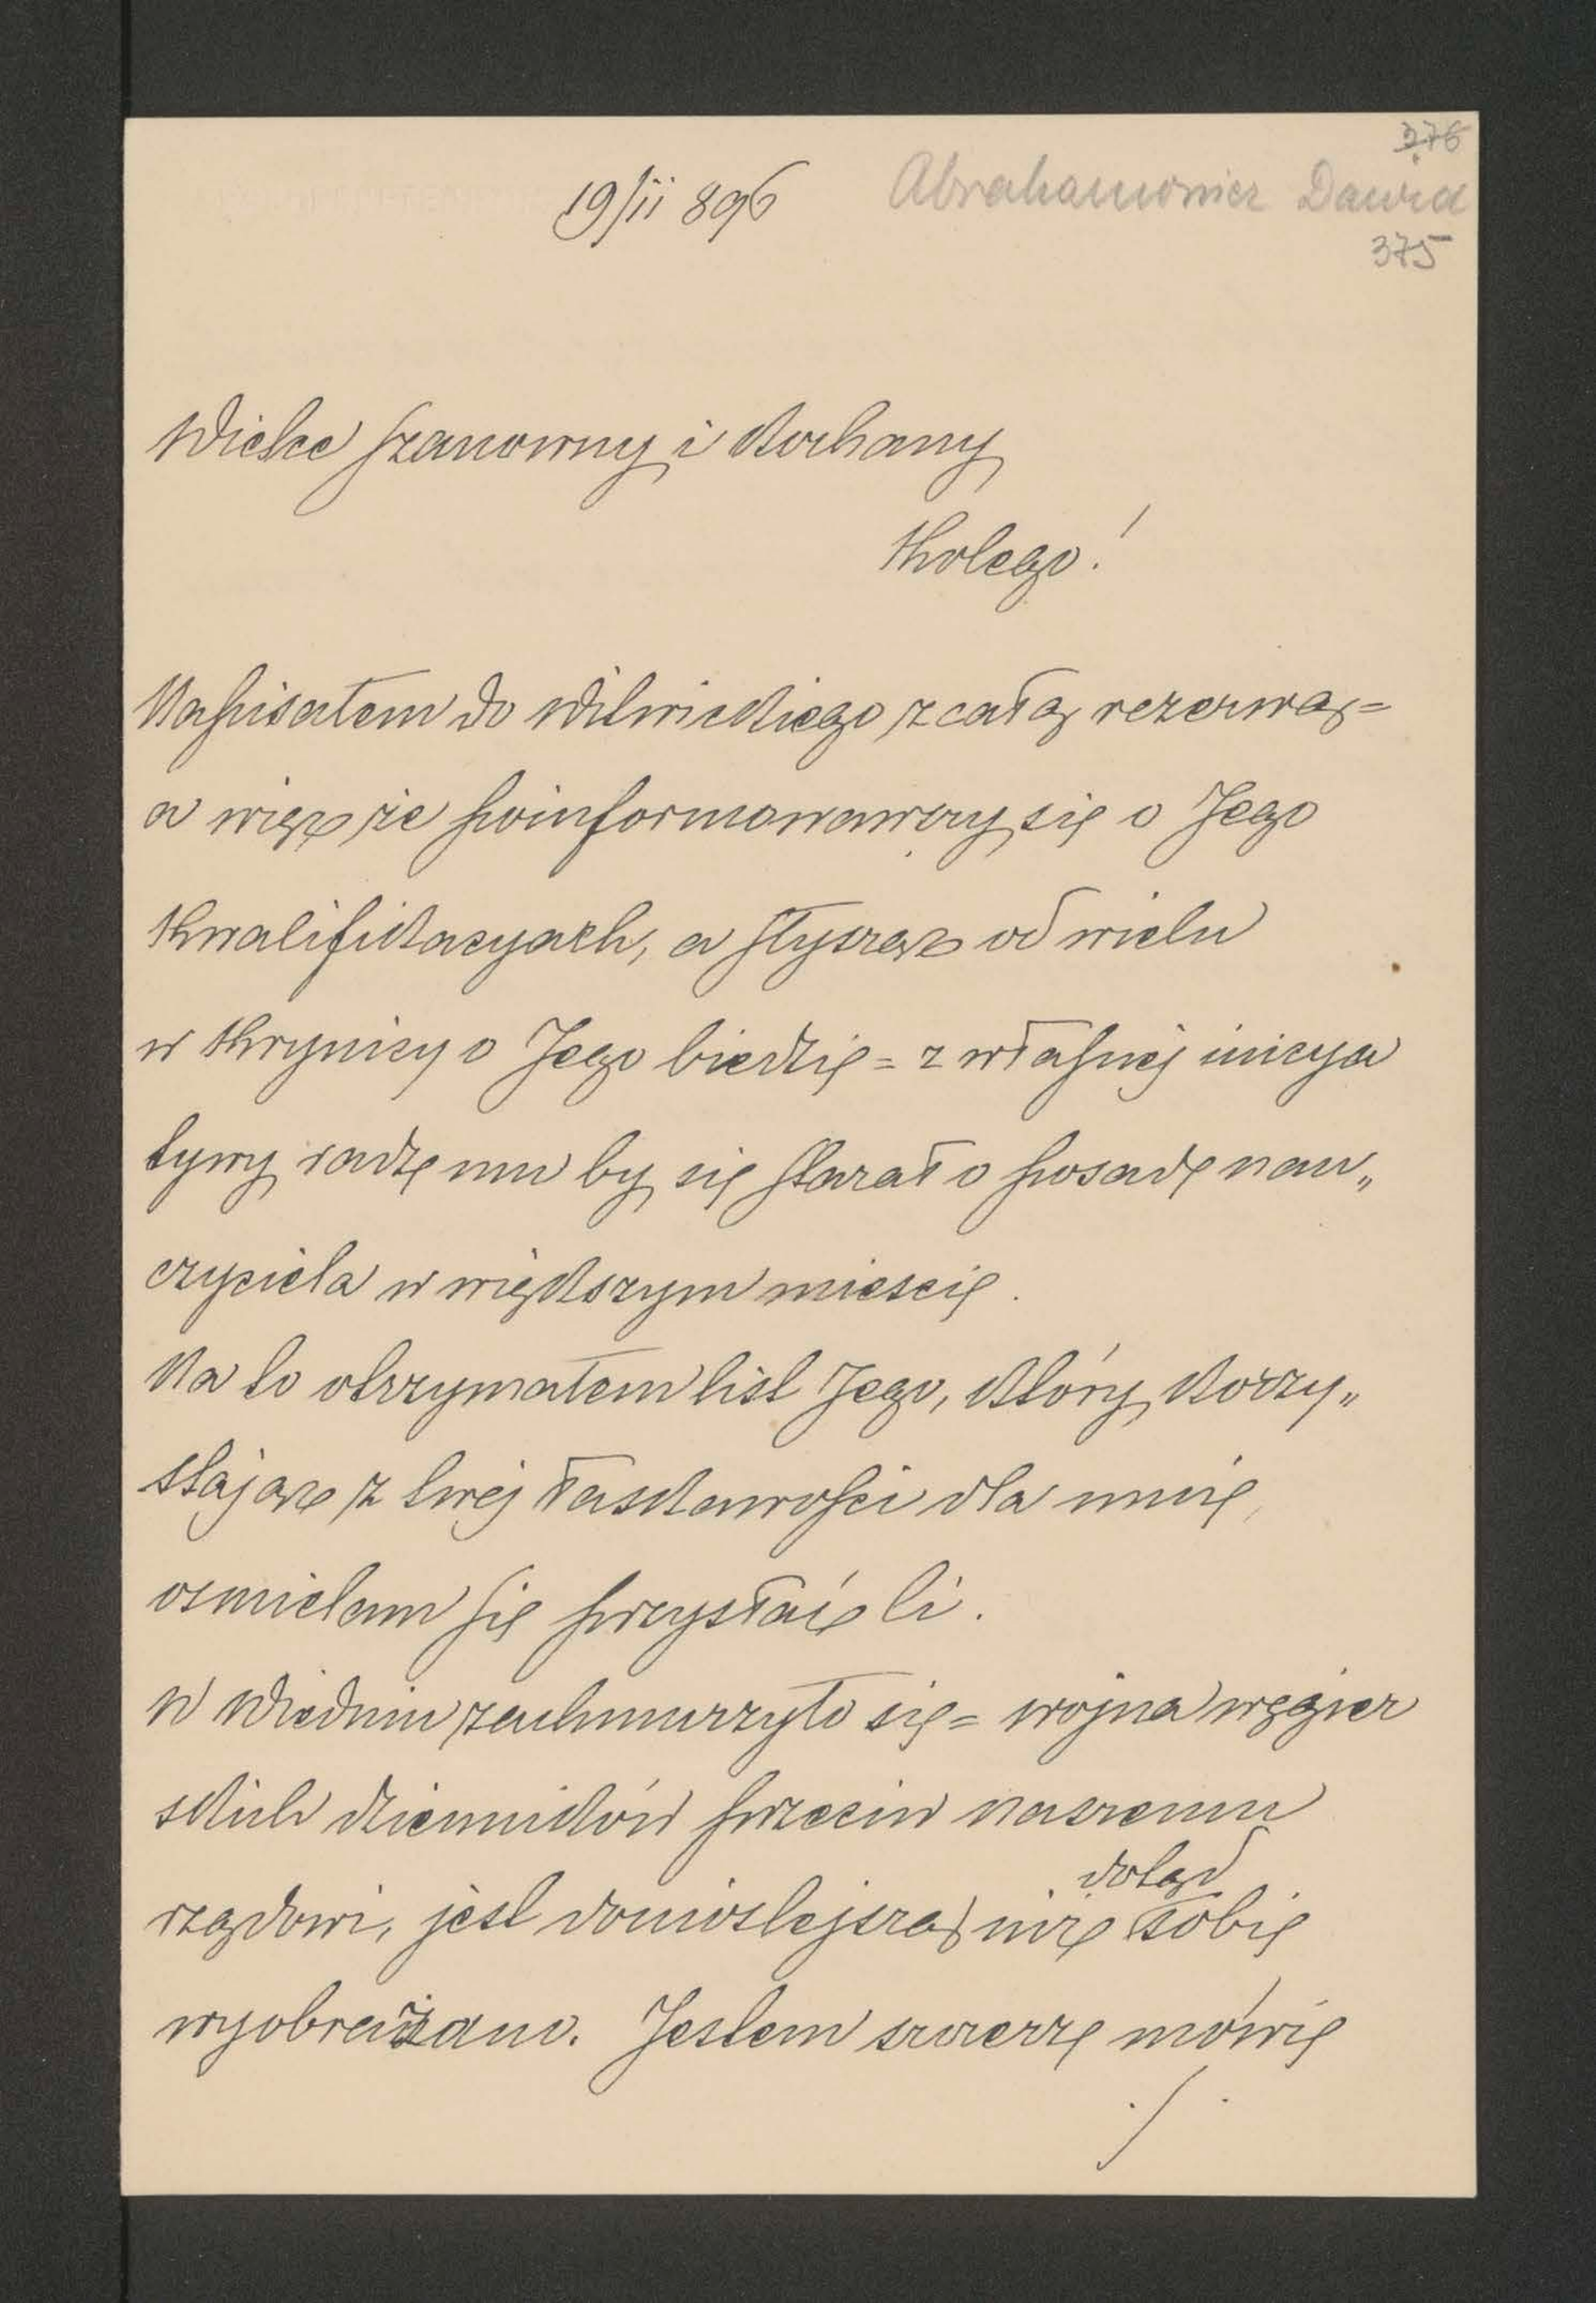 376
19/ii 896 Abrahamowicz Dawid
375
Wielce szanowny i kochany
Kolego!
Napisałem do Wilwickiego z całą rezerwą=
a więc że poinformowawszy się o Jego
kwalifikacyach, a słysząc od wielu
w Krynicy o Jego biedzie = z własnej inicya
tywy radzę mu by się starał o posadę nau„
czyciela w większym miescie.
Na to otrzymałem list Jego, który korzy„
stając z twej łaskawości dla mnie,
osmielam się przysłać ci.
W Wiedniu zachmurzyło się = wojna węgier
skich dzienników przeciw naszemu
dotąd
rządowi, jest donioslejszą niż sobie
wyobrażano. Jestem szczerze mówię
./.